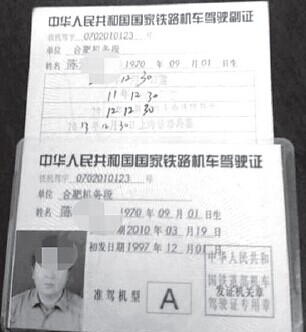 中华人民共和国国家铁路机车驾驶副证
铁机驾字 0702010123 号
单位 合肥机务段
姓名 陈 1970 年 09 月 01 日生
12 30
11 12 30
12 12 30
13 12 30
中华人民共和国国家铁路机车驾驶证
铁机驾字 0702010123 号
单位 合肥机务段
姓名 陈 1970 年 09 月 01 日生
日期 2010 年 03 月 19 日
初发日期 1997 年 12 月 01 日
准驾机型 A
中华人民共和
国铁道部机车
发证机关章
驾驶证专用章